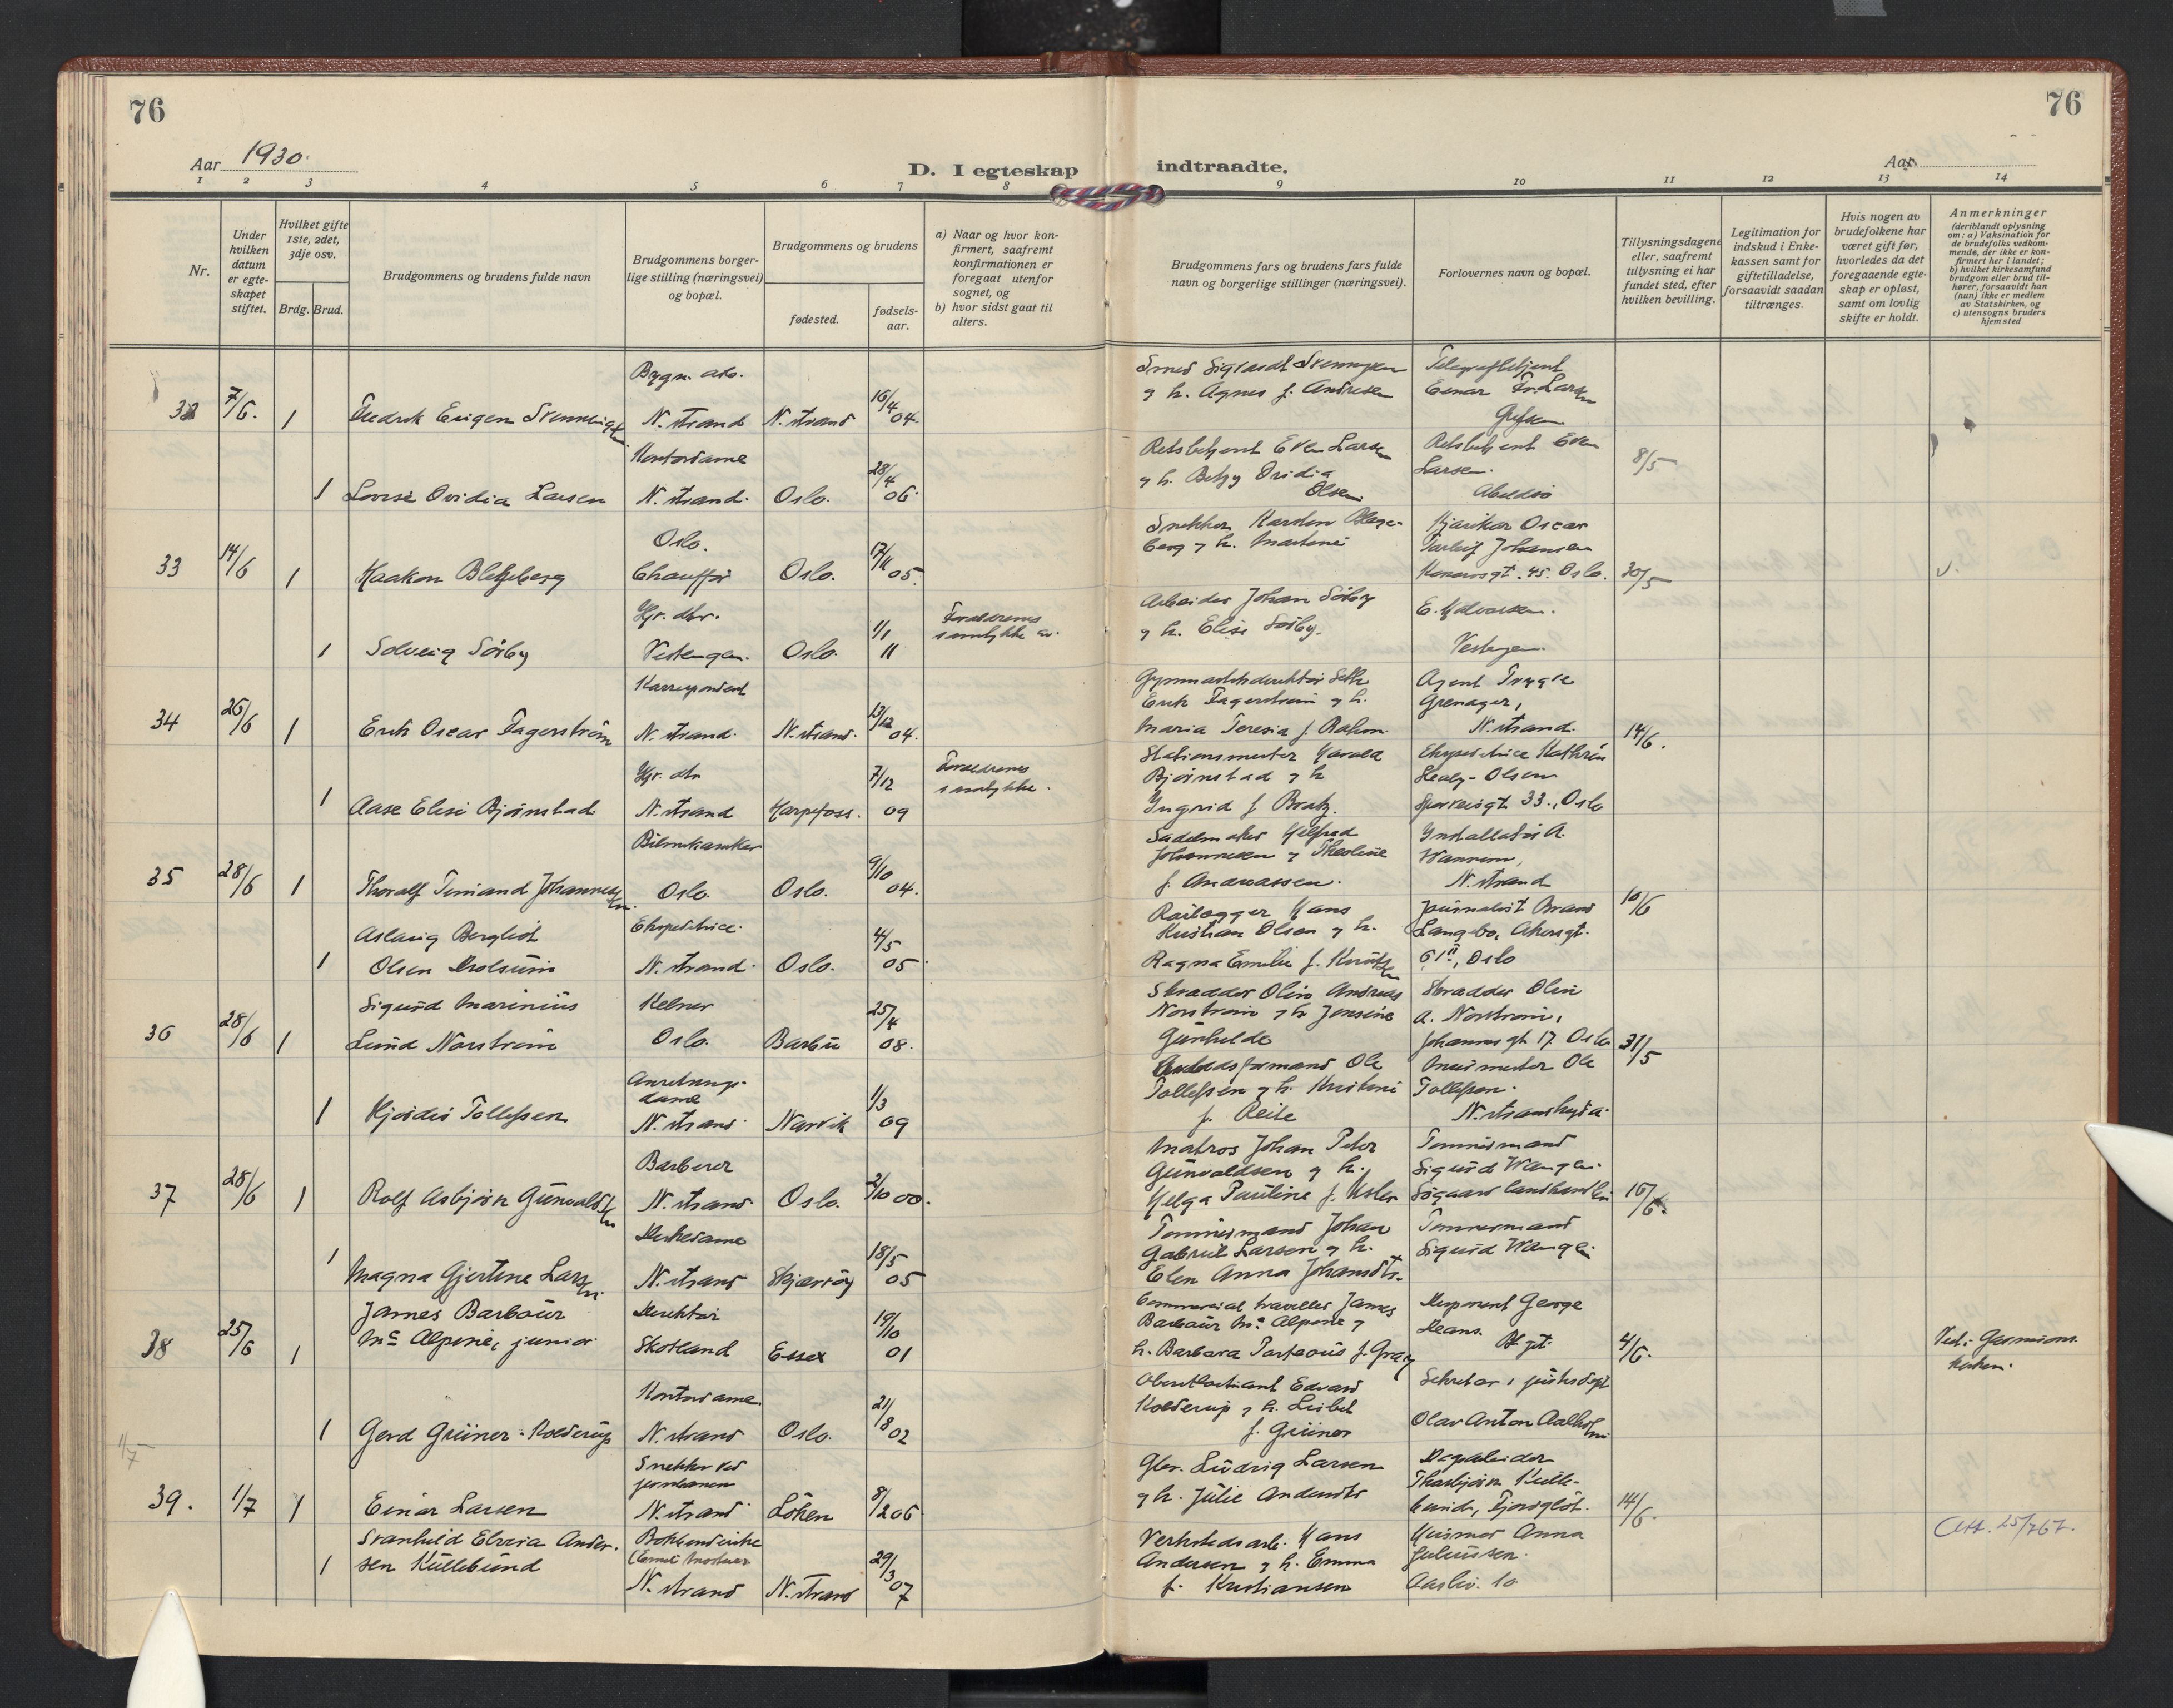 76
76
Aar 1930.
D. I egteskap indtraadte.
Aar
1 2 3 4 5 6 7 8 9 10 11 12 13 14
Nr.
Under hvilken datum er egteskapet stiftet.
Hvilket gifte 1ste, 2det, 3dje osv.
Brdg. Brud.
Brudgommens og brudens fulde navn
Brudgommens borgerlige stilling (næringsvei) og bopæl.
Brudgommens og brudens
fødested.
fødselsaar.
a) Naar og hvor konfirmert, saafremt konfirmationen er foregaat utenfor sognet, og
b) hvor sidst gaat til alters.
Brudgommens fars og brudens fars fulde navn og borgerlige stillinger (næringsvei).
Forlovernes navn og bopæl.
Tillysningsdagene eller, saafremt tillysning ei har fundet sted, efter hvilken bevilling.
Legitimation for indskud i Enkekassen samt for giftetilladelse, forsaavidt saadan tiltrænges.
Hvis nogen av brudefolkene har været gift før, hvorledes da det foregaaende egteskap er opløst, samt om lovlig skifte er holdt.
Anmerkninger (deriblandt oplysning om: a) Vaksination for de brudefolks vedkommende, der ikke er konfirmert her i landet; b) hvilket kirkesamfund brudgom eller brud tilhører, forsaavidt han (hun) ikke er medlem av Statskirken, og c) utensogns bruders hjemsted
32 7/6. 1 Fredrik Eugen Svenningsen
N. strand N. strand 16/4 04.
Smed Sigvardt Svenningsen
g h. Agnes f. Andresen
Telegrafbetjent
Einar Fr. Larsen
1 Lovise Ovidia Larsen
Kontordame
N. strand. Oslo. 28/4 06.
Retsbetjent Even Larsen
g h. Betzy Ovidia
Olsen
Retsbetjent Even
Larsen.
8/5
33 14/6 1 Haakon Blekeberg
Oslo.
Chauffør Oslo. 17/11 05.
Snekker Karsten Blege-
berg g h. Martine
Oscar
Johansen
gt. 45. Oslo. 30/5
v.
1 Solveig Sörby
Hjr. dtr.
Vestengen. Oslo. 1/1 11
Foreldrenes
samtykke
Arbeider Johan Sörby
g h. Elise Sörby.
E. Halvorsen.
Vestengen.
34 26/6 1 Erik Oscar Fagerström
Korrespondent
N. strand. N. strand. 13/12 04.
Gymnastikdirektör Seth
Erik Fagerström g h.
Maria Teresia f.
Agent Trygve
Grenager,
N. strand. 14/6.
1 Aase Elise Bjørnstad
Hjr. dtr
N. strand Harpefoss. 7/12 09
Foreldrenes
samtykke.
Stationsmester Harald
Bjørnstad g h
Ingrid f Bratz.
Ekspeditrice Kathrine
Healy-Olsen
33., Oslo
35 28/6 1 Thoralf Johannessen.
Bilmekaniker
Oslo. Oslo. 9/10 04.
Sadelmaker
Johannesen g Theoline
f. Andreassen.
Installatör A.
N. strand
10/6
1 Aslaug Bergliot
Olsen
Ekspeditrice.
N. strand. Oslo. 4/5 05.
Hans
Kristian Olsen g h.
Ragna Emilie f. Knudsen
Journalist
Langebo, Akersgt.
61 II, Oslo
36 28/6 1 Sigurd Marinius
Lund Norström
Kelner
Oslo. Barbu 25/4 08.
Skrædder Olin Andreas
Norström g h Jensine
Gunhilde
Skrædder Olin
A. Norström,
Johannesgt 17 Oslo 31/5
1 Hjørdis Tollefsen
Anretnings-
dame
N. strand. Narvik 1/3 09
Arbeidsformand Ole
Tollefsen g h. Kristine
f. Reite
Murmester Ole
Tollefsen.
37 28/6 1 Rolf Asbjørn Gunvaldsen
Barberer
N. strand. Oslo. 2/10 00.
Matros Johan Peter
Gunvaldsen g h.
Helga Pauline f.
Tømmermand
Sigurd Wangen.
16/6.
1 Magna Gjertine Larsen.
N. strand Skjærvöy 18/5 05
Tømmermand Johan
Gabriel Larsen g h.
Elen Anna Johansdtr.
Tømmermand
Sigurd Wangen.
38 25/6 1 James Barbour
Mc Alpine, junior
Direktör
Skotland Essex 19/10 01
Commercial traveller James
Barbour Mc Alpine g
h. Barbara f. Gray
Disponent George
Deans.
4/6.
1 Gerd Grüner-Kolderup
Kontordame
N. strand Oslo. 21/8 02
Oberstløitnant Edvard
Kolderup g h. Lisbet
f. Grüner
Sekretær i justisdept
Olav Anton Aalholm
1/7
39. 1/7 1 Einar Larsen
Snekker ved
jernbanen
N. strand. Löken 8/2 06.
Gbr. Ludvig Larsen
g h. Julie Andersdtr
Thorbjørn Kulle-
bund, 14/6.
1 Svanhild Elvira Ander-
sen Kullebund
N. strand N. strand 29/3 07
Verkstedsarb. Hans
Andersen g h. Emma
f. Kristiansen
Husmor Anna
Juliussen.
Aasliv. 10
Att. 25/7 67.